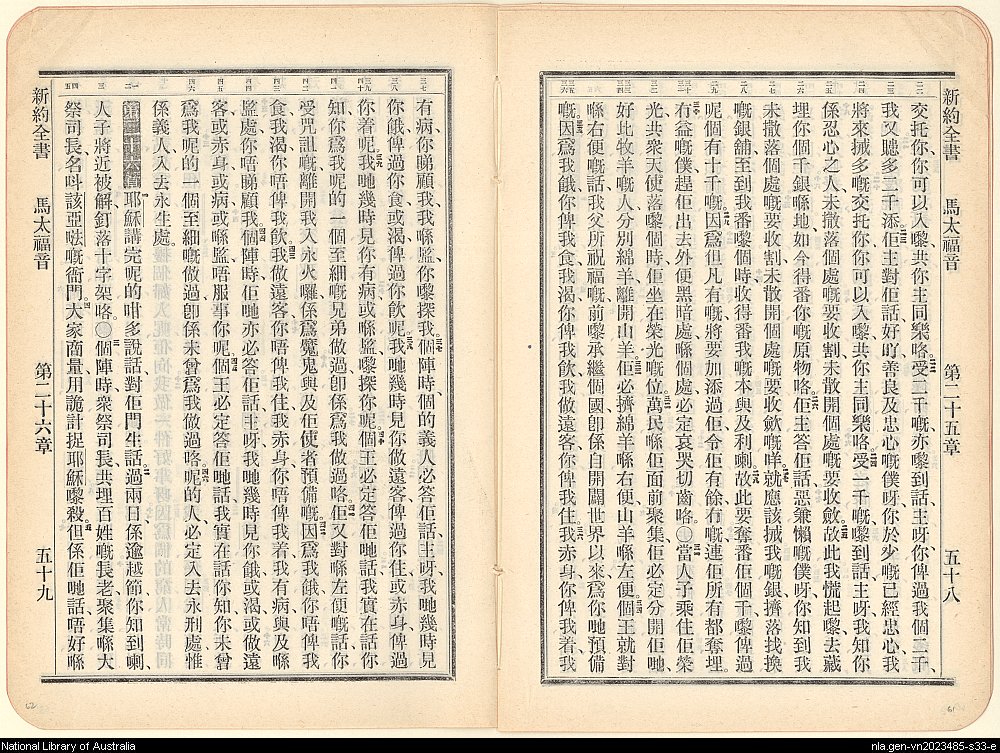 新約全書 馬太福音 第二十五章 五十八
交托你你可以入嚟共你主同樂咯受二千嘅亦嚟到話主呀你俾過我個二千
我又驄多二千添佢主對佢話好吖善良及忠心嘅僕呀你於少嘅已經忠心我
將來撼多嘅交托你你可以入嚟共你主同樂咯受一千嘅嚟到話主呀我知你
係忍心之人未撒落個處嘅要收割未散開個處嘅要收斂故此我慌起嚟去藏
埋你個千銀喺地如今得番你嘅原物咯佢主答佢話惡兼懶嘅僕呀你知到我
未撒落個處嘅要收割未散開個處嘅要收歛嘅咩就應該撼我嘅銀擠落找換
嘅銀舖至到我番嚟個時收得番我嘅本與及利喇故此要奪番佢個千嚟俾過
呢個有十千嘅因爲但凡有嘅將要加添過佢令佢有餘冇嘅連佢所有都奪埋
冇益嘅僕趕佢出去外便黑暗處喺個處必定哀哭切齒咯〇當人子乘住佢榮
光共衆天使落嚟個時佢坐在榮光嘅位萬民喺佢面前聚集佢必定分開佢哋
好此牧羊嘅人分別綿羊離開山羊佢必擠綿羊喺右便山羊喺左便個王就對
喺右便嘅話我父所祝福嘅前嚟承繼個國卽係自開闢世界以來爲你哋預備
嘅因爲我餓你俾我食我渴你俾我飲我做遠客你俾我住我赤身你俾我着我
新約全書 馬太福音 第二十六章 五十九
有病你睇顧我我喺監你嚟探我個陣時個的義人必答佢話主呀我哋幾時見
你餓俾過你食或渴俾過你飲呢我哋幾時見你做遠客俾過你住或赤身俾過
你着呢我哋幾時見你有病或喺監嚟探你呢個王必定答佢哋話我實在話你
知你爲我呢的一個至細嘅兄弟做過卽係爲我做過咯佢又對喺左便嘅話你
受咒詛嘅離開我入永火囉係爲魔鬼與及佢使者預備嘅因爲我餓你唔俾我
食我渴你唔俾我飲我做遠客你唔俾我住我赤身你唔俾我着我有病與及喺
監處你唔睇顧我個陣時佢哋亦必答佢話主呀我哋幾時見你餓或渴或做遠
客或赤身或病或喺監唔服事你呢個王必定答佢哋話我實在話你知你未曾
爲我呢的一個至細嘅做過卽係未曾爲我做過咯呢的人必定入去永刑處惟
係義人入去永生處
第二十六章 耶穌講完呢的咁多說話對佢門生話過兩日係逾越節你知到喇
人子將近被解釘落十字架咯〇個陣時衆祭司長共埋百姓嘅長老聚集喺大
祭司長名呌該亞法嘅衙門大家商量用詭計捉耶穌嚟殺但係佢哋話唔好喺
National Library of Australia
nla.gen-vn2023485-s33-e